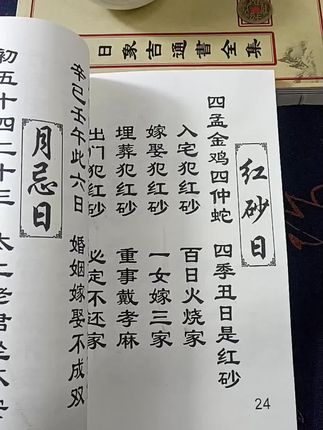 日象吉通書全集
红砂日
四孟金鸡四仲蛇 四季丑日是红砂
入宅犯红砂 百日火烧家
嫁娶犯红砂 一女嫁三家
埋葬犯红砂 重事戴孝麻
出门犯红砂 必定不还家
24
辛巳壬午此六日 婚姻嫁娶不成双
月忌日
初五十四二十三 太上老君